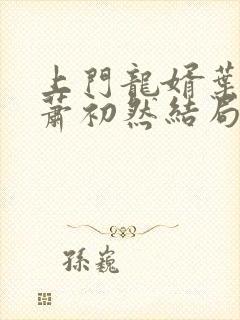 上門龍婿葉
蕭初然結局
孫巍